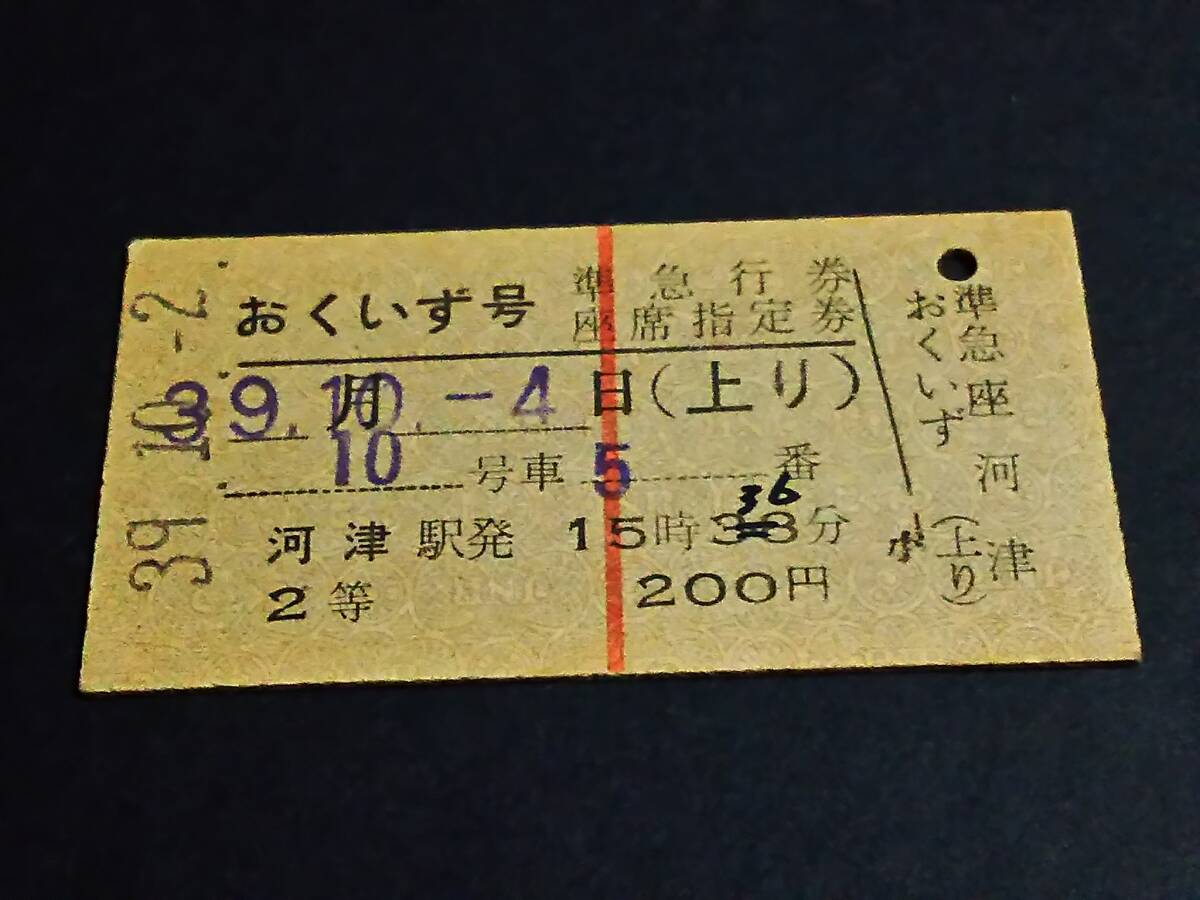 39.10.-2
おくいず号 準急行券
座席指定券
39.10.-4
月 日(上り)
10 号車 5 番
36
河津駅発 15時33分
2等 200円
準急座 河津
おくいず
(上り)